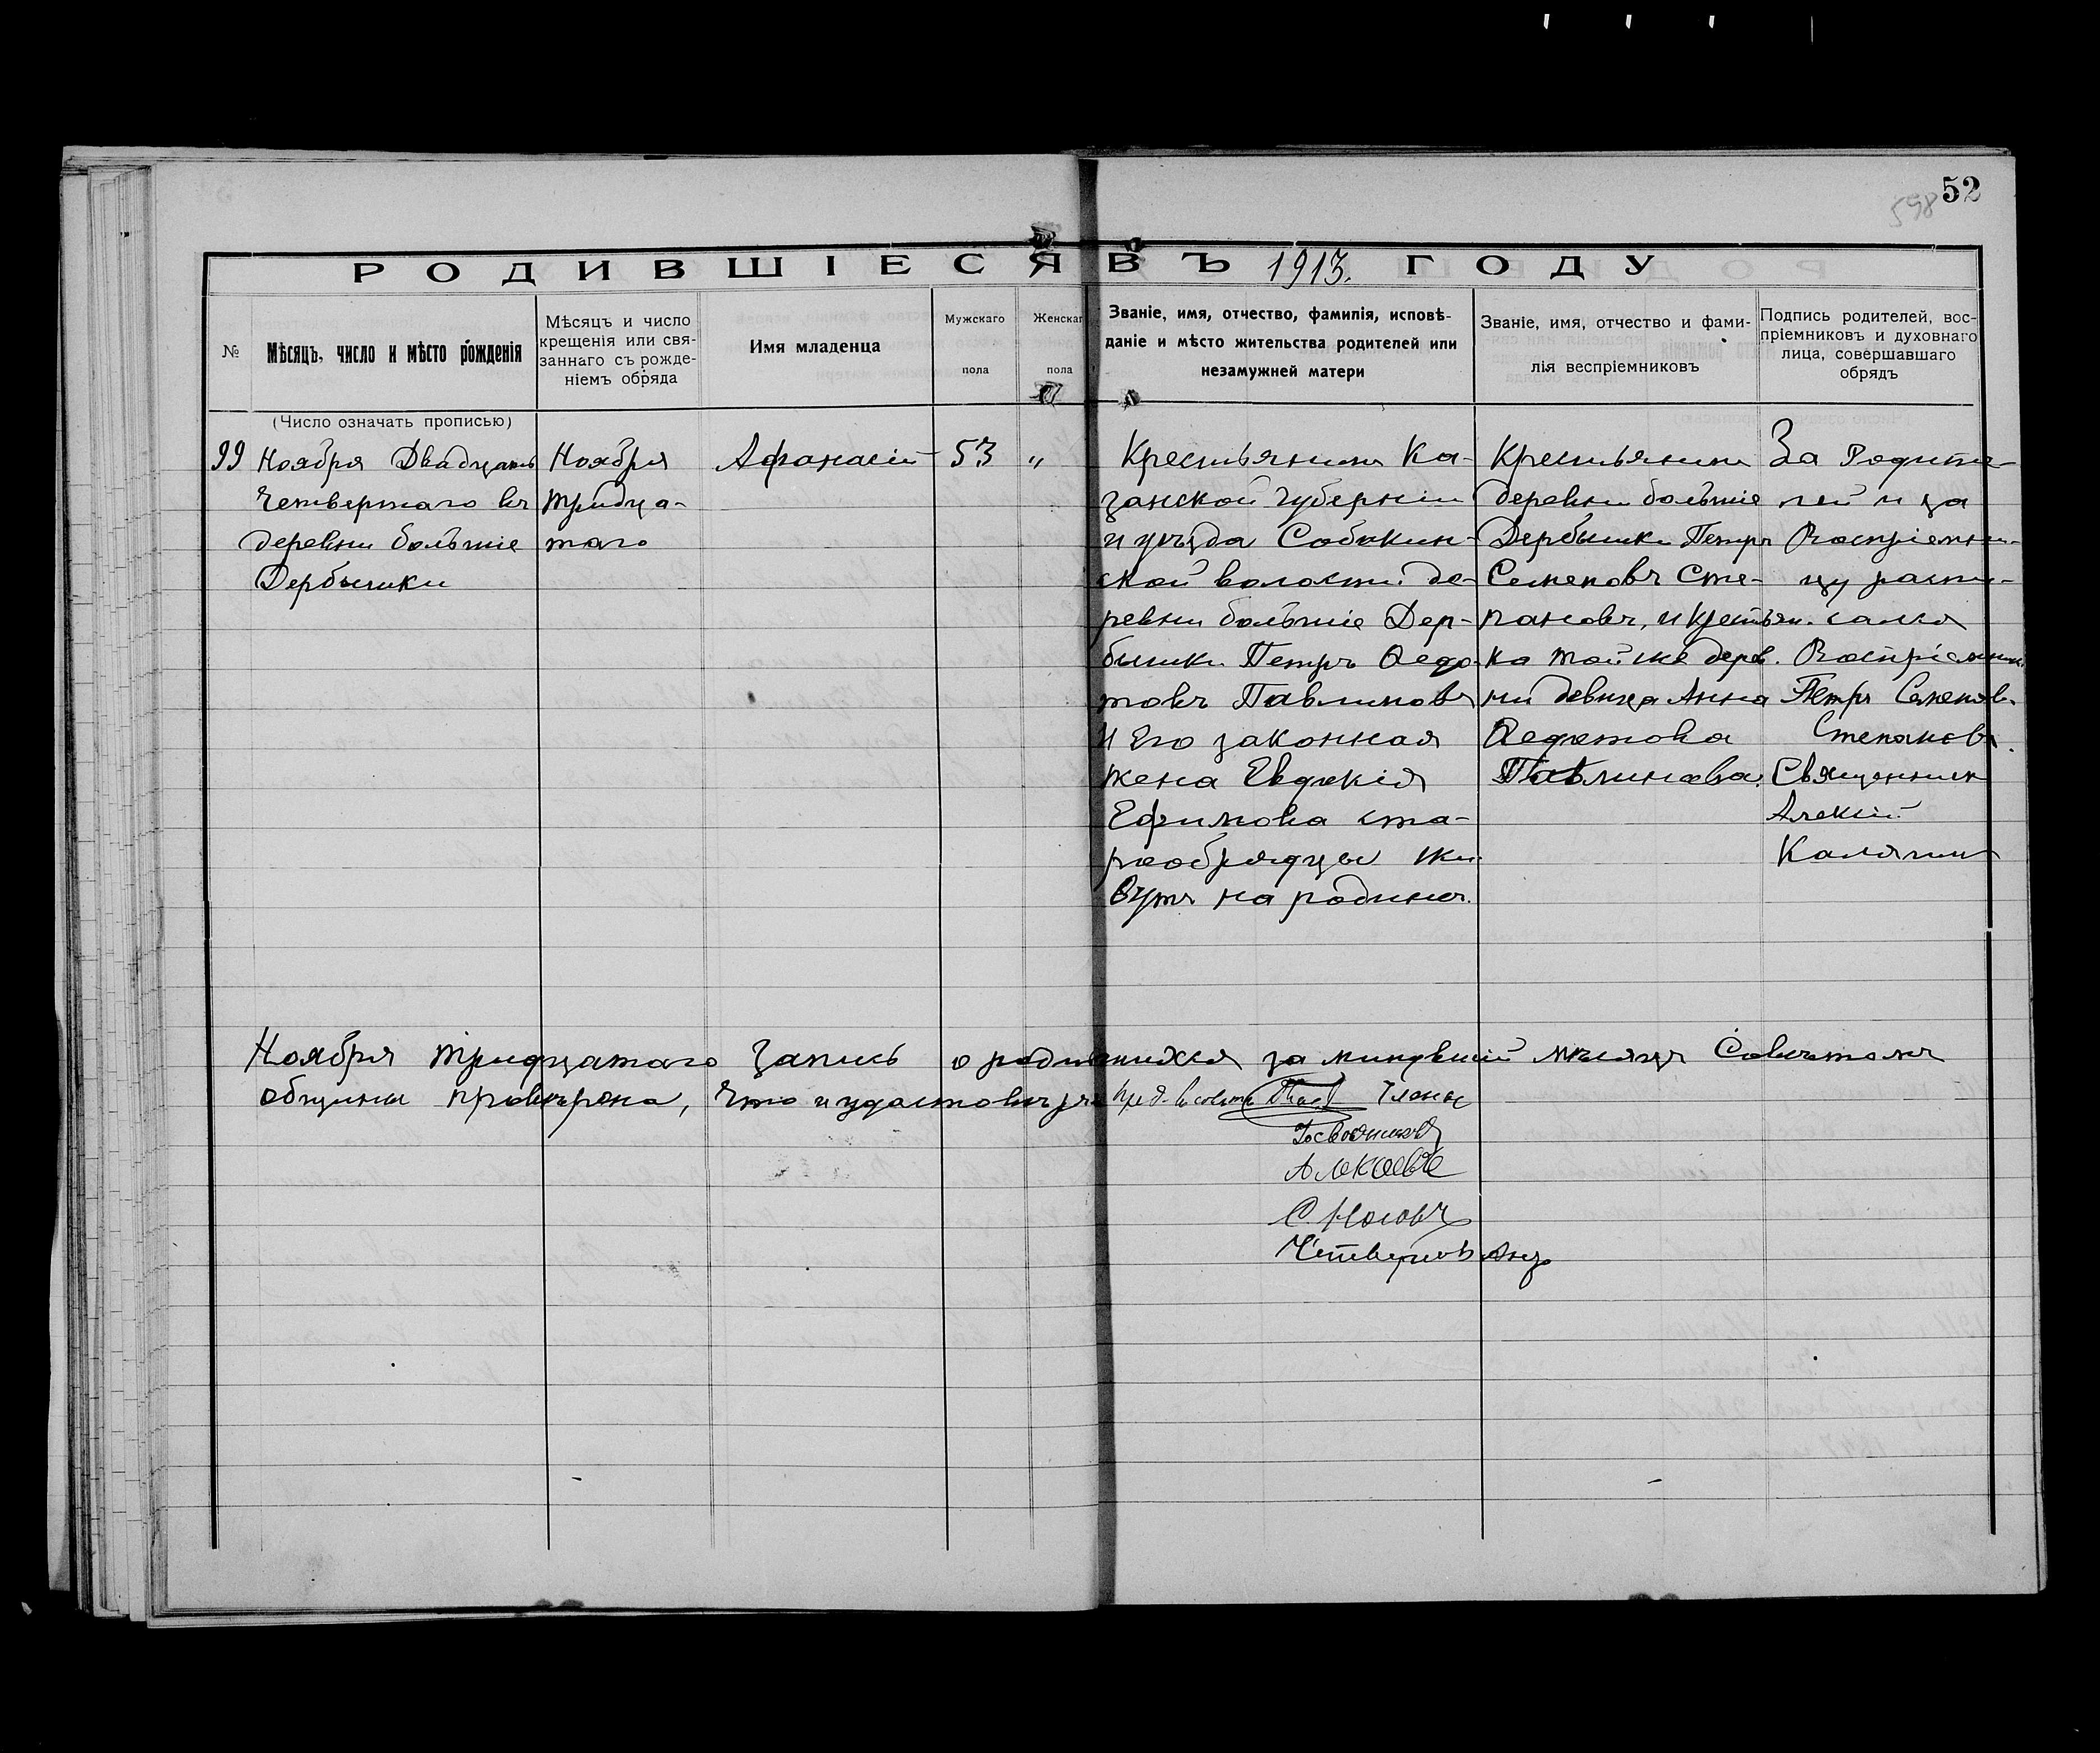 52
598
РОДИВШІЕСЯ ВЪ 1913. ГОДУ
№
Мѣсяцъ, число и мѣсто рожденія
Мѣсяцъ и число
крещенія или свя-
заннаго съ рожде-
ніемъ обряда
Имя младенца
Мужскаго
пола
Женскаг
пола
Званіе, имя, отчество, фамилія, исповѣ-
даніе и мѣсто жительства родителей или
незамужней матери
Званіе, имя, отчество и фами-
лія веспріемниковъ
Подпись родителей, вос-
пріемниковъ и духовнаго
лица, совершавшаго
обрядъ
(Число означать прописью)
99
Ноября Двадцать
Четвертаго въ
деревни большіе
Дербышки
Ноября
тридца-
таго
Афанасій
53
"
Крестьянинъ Ка-
занской губерніи
и уѣзда Собакин-
ской волости де-
ревни большіе Дер-
бышки Петръ Ѳедо-
товъ Павлиновъ
и Его законная
жена Евдокія
Ефимова ста-
рообрядцы жи-
вутъ на родинѣ.
Крестьянинъ
деревни большіе
Дербышки Петръ
Семеновъ Сте-
пановъ, и крестьян.
ка той же дерев.
ни девица Анна
Ѳедотова
Павлинова.
За Родите-
лей и за
Воспріемни-
цу распи-
сался
Воспріемник
Петръ Семенов.
Степановъ.
Священникъ
Алексій
Калягинъ
Ноября тридцатаго Запись о родившихся за минувшій мѣсяцъ Совѣтомъ
общины провѣрена, Что и удостовѣря Пред. Совѣта Члены
Госводчиковъ
С. Носовъ